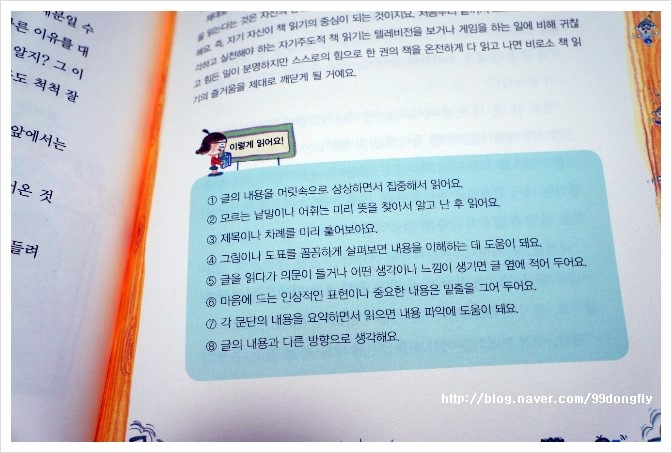 대분일 수
른 이유를 대
알지? 그 이
도 척척 잘
앞에서는
어온 것
들려
을 읽는다는 것은 자신의
해요. 즉, 자기 자신이 책 읽기의 중심이 되는 것이지요.
각하고 실천해야 하는 자기주도적 책 읽기는 텔레비전을 보거나 게임을 하는 일에 비해 귀찮
고 힘든 일이 분명하지만 스스로의 힘으로 한 권의 책을 온전하게 다 읽고 나면 비로소 책 읽
기의 즐거움을 제대로 깨닫게 될 거예요.
이렇게 읽어요!
① 글의 내용을 머릿속으로 상상하면서 집중해서 읽어요.
② 모르는 낱말이나 어휘는 미리 뜻을 찾아서 알고 난 후 읽어요.
③ 제목이나 차례를 미리 훑어보아요.
④ 그림이나 도표를 꼼꼼하게 살펴보면 내용을 이해하는 데 도움이 돼요.
⑤ 글을 읽다가 의문이 들거나 어떤 생각이나 느낌이 생기면 글 옆에 적어 두어요.
⑥ 마음에 드는 인상적인 표현이나 중요한 내용은 밑줄을 그어 두어요.
⑦ 각 문단의 내용을 요약하면서 읽으면 내용 파악에 도움이 돼요.
⑧ 글의 내용과 다른 방향으로 생각해요.
http://blog.naver.com/99dongfly